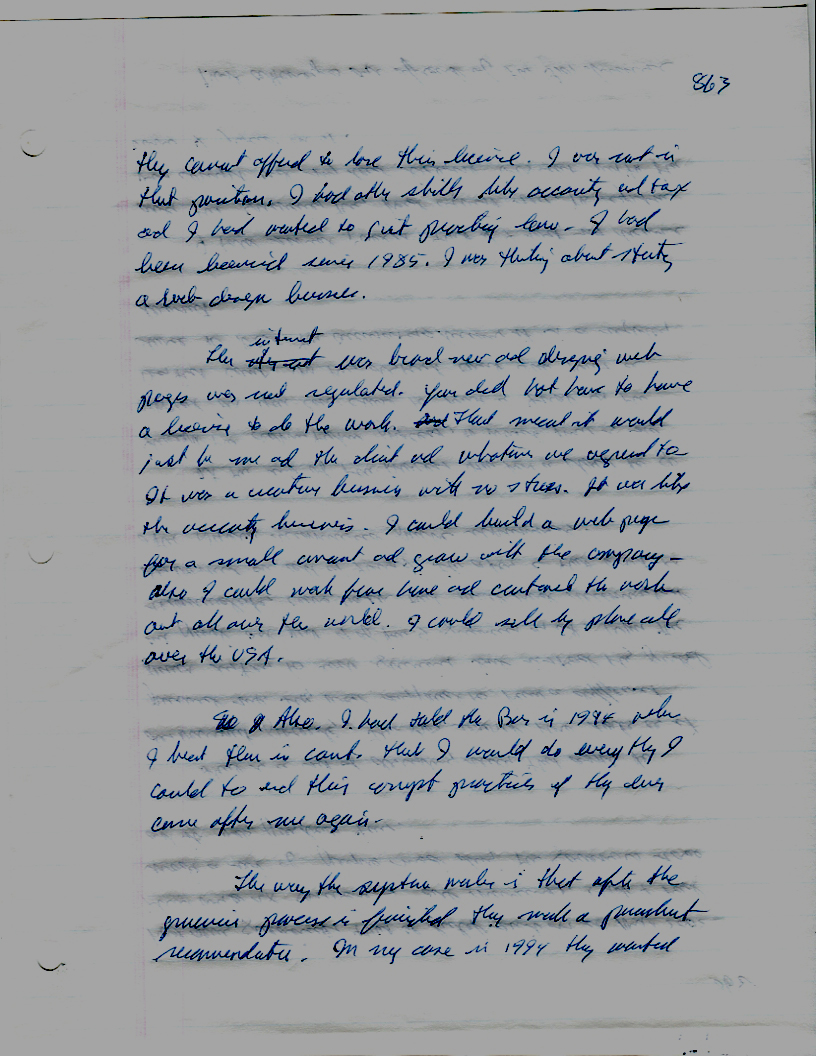 863
they cannot afford to lose this license. I was not in
that position. I had other skills like accounting and tax
and I had wanted to quit practicing law. I had
been licensed since 1985. I was thinking about starting
a web design business.
internet
The was brand new and designing web
pages was not regulated. You did not have to have
a license to do the work. That meant it would
just be me and the client and whatever we agreed to
It was a creative business with no stress. It was like
the accounting business. I could build a web page
for a small amount and grow with the company -
also I could work from home and contract the work
out all over the world. I could sell by phone all
over the USA.
Also. I had told the Bar in 1994 when
I beat them in court. that I would do everything I
could to end their corrupt practices if they ever
came after me again.
The way the system works is that after the
grievance process is finished they make a punishment
recommendation. In my case in 1994 they wanted